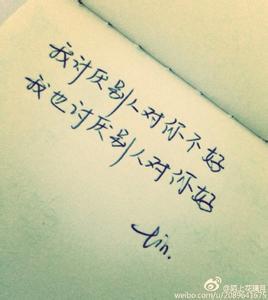 我讨厌别人对你不好
我也讨厌别人对你好
lin.
@陌上花璃月
weibo.com/u/2089641675